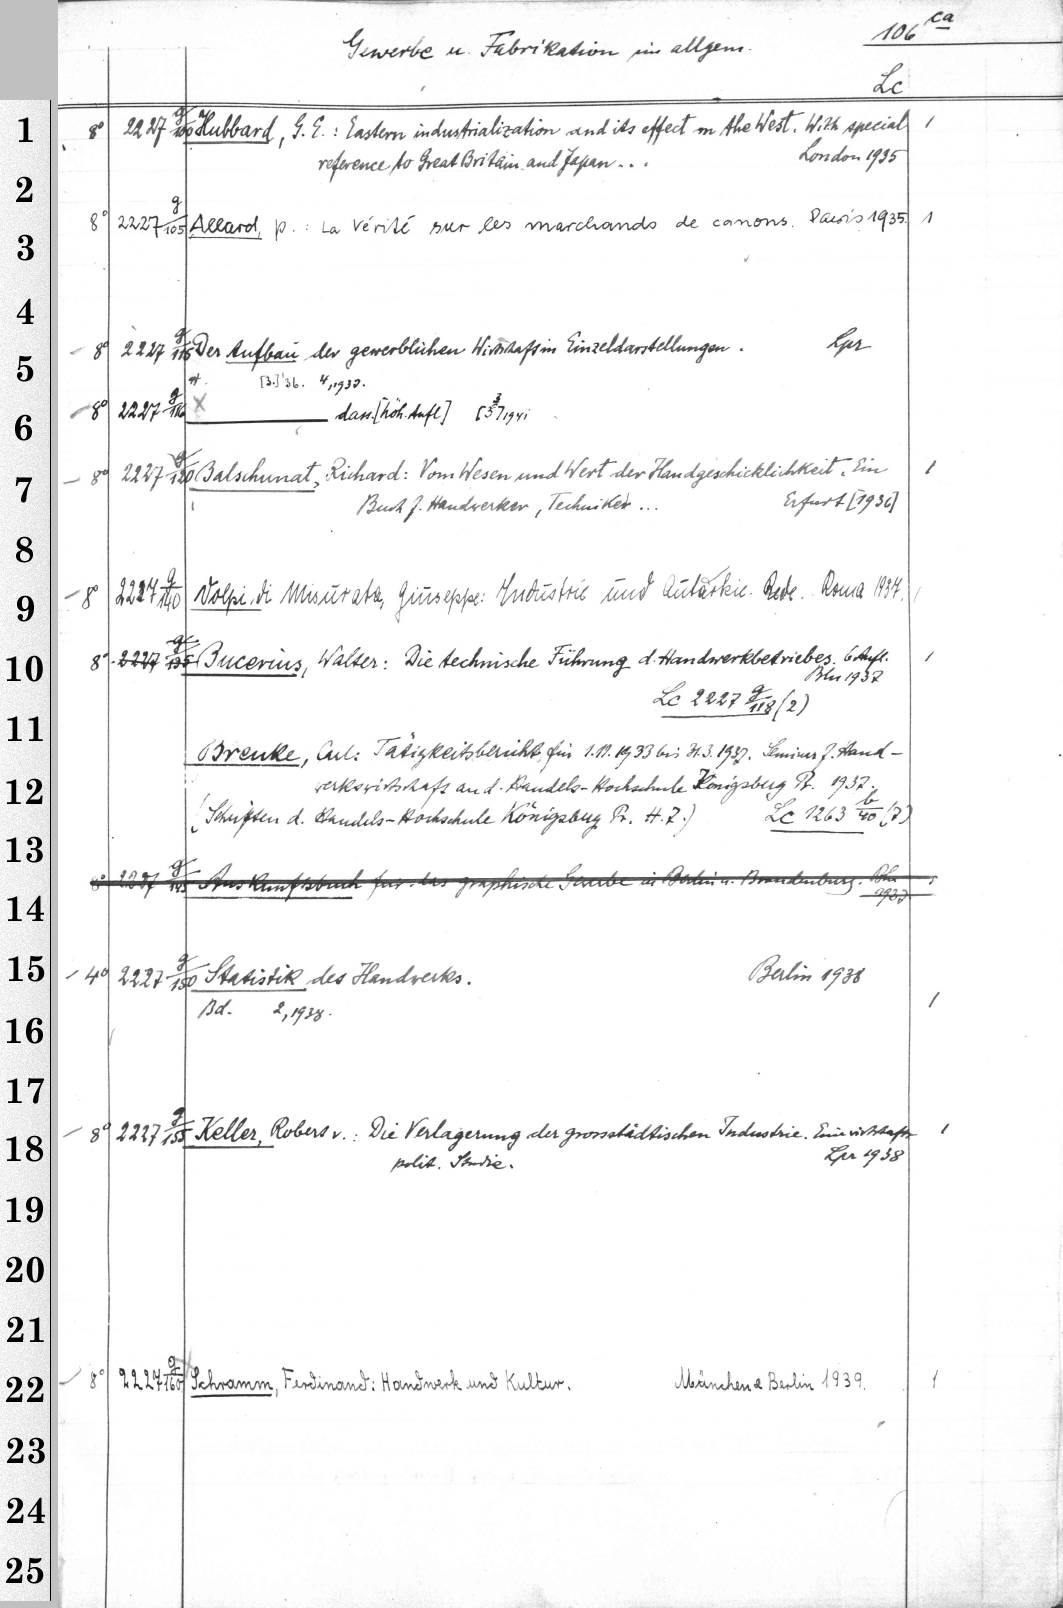 106 ca
Gewerbe u. Fabrikation im allgem.
Lc
1 8° 2227 g/100 Hubbard, G. E.: Eastern industrialization and its effect on the West. With special 1
reference to Great Britain and Japan... London 1935
2
8° 2227 g/105 Allard, p.: La Vérité sur les marchands de canons. Paris 1935. 1
3
4
8° 2227 g/115 Der Aufbau der gewerblichen Wirtschaft in Einzeldarstellungen. Lpz
5
[3.]'36. 4,1939.
8° 2227 g/116 X dass. [höh. Aufl.] 1941
6
8° 2227 g/120 Balschunat, Richard: Vom Wesen und Wert der Handgeschicklichkeit. Ein 1
7
Buch f. Handwerker, Techniker ... Erfurt [1936]
8
8° 2227 g/140 Volpi di Misurata, Giuseppe: Industrie und Autarkie. Rede. Roma 1937. 1
9
8° 2227 g/135 Bucerius, Walter: Die technische Führung d. Handwerkbetriebes. 6. Aufl. 1
10
Bln 1937
Lc 2227 g/118 (2)
11
Brenke, Carl: Tätigkeitsbericht für 1.11.1933 bis 31.3.1937. Seminar f. Hand-
werkswirtschaft an d. Handels-Hochschule Königsberg Pr. 1937.
12
(Schriften d. Handels-Hochschule Königsberg Pr. H. 7.) Lc 1263 b/40 (7)
13
8° 2227 g/145 Auskunftsbuch für das graphische Gewerbe in Berlin u. Brandenburg. Bln 1
1937
14
15 4° 2227 g/150 Statistik des Handwerks. Berlin 1938
1
Bd. 2,1938.
16
17
8° 2227 g/155 Keller, Robert v.: Die Verlagerung der grossstädtischen Industrie. Eine wirtschafts- 1
18
polit. Studie. Lpz 1938
19
20
21
22 8° 2227 g/160 Schramm, Ferdinand: Handwerk und Kultur. München & Berlin 1939. 1
23
24
25